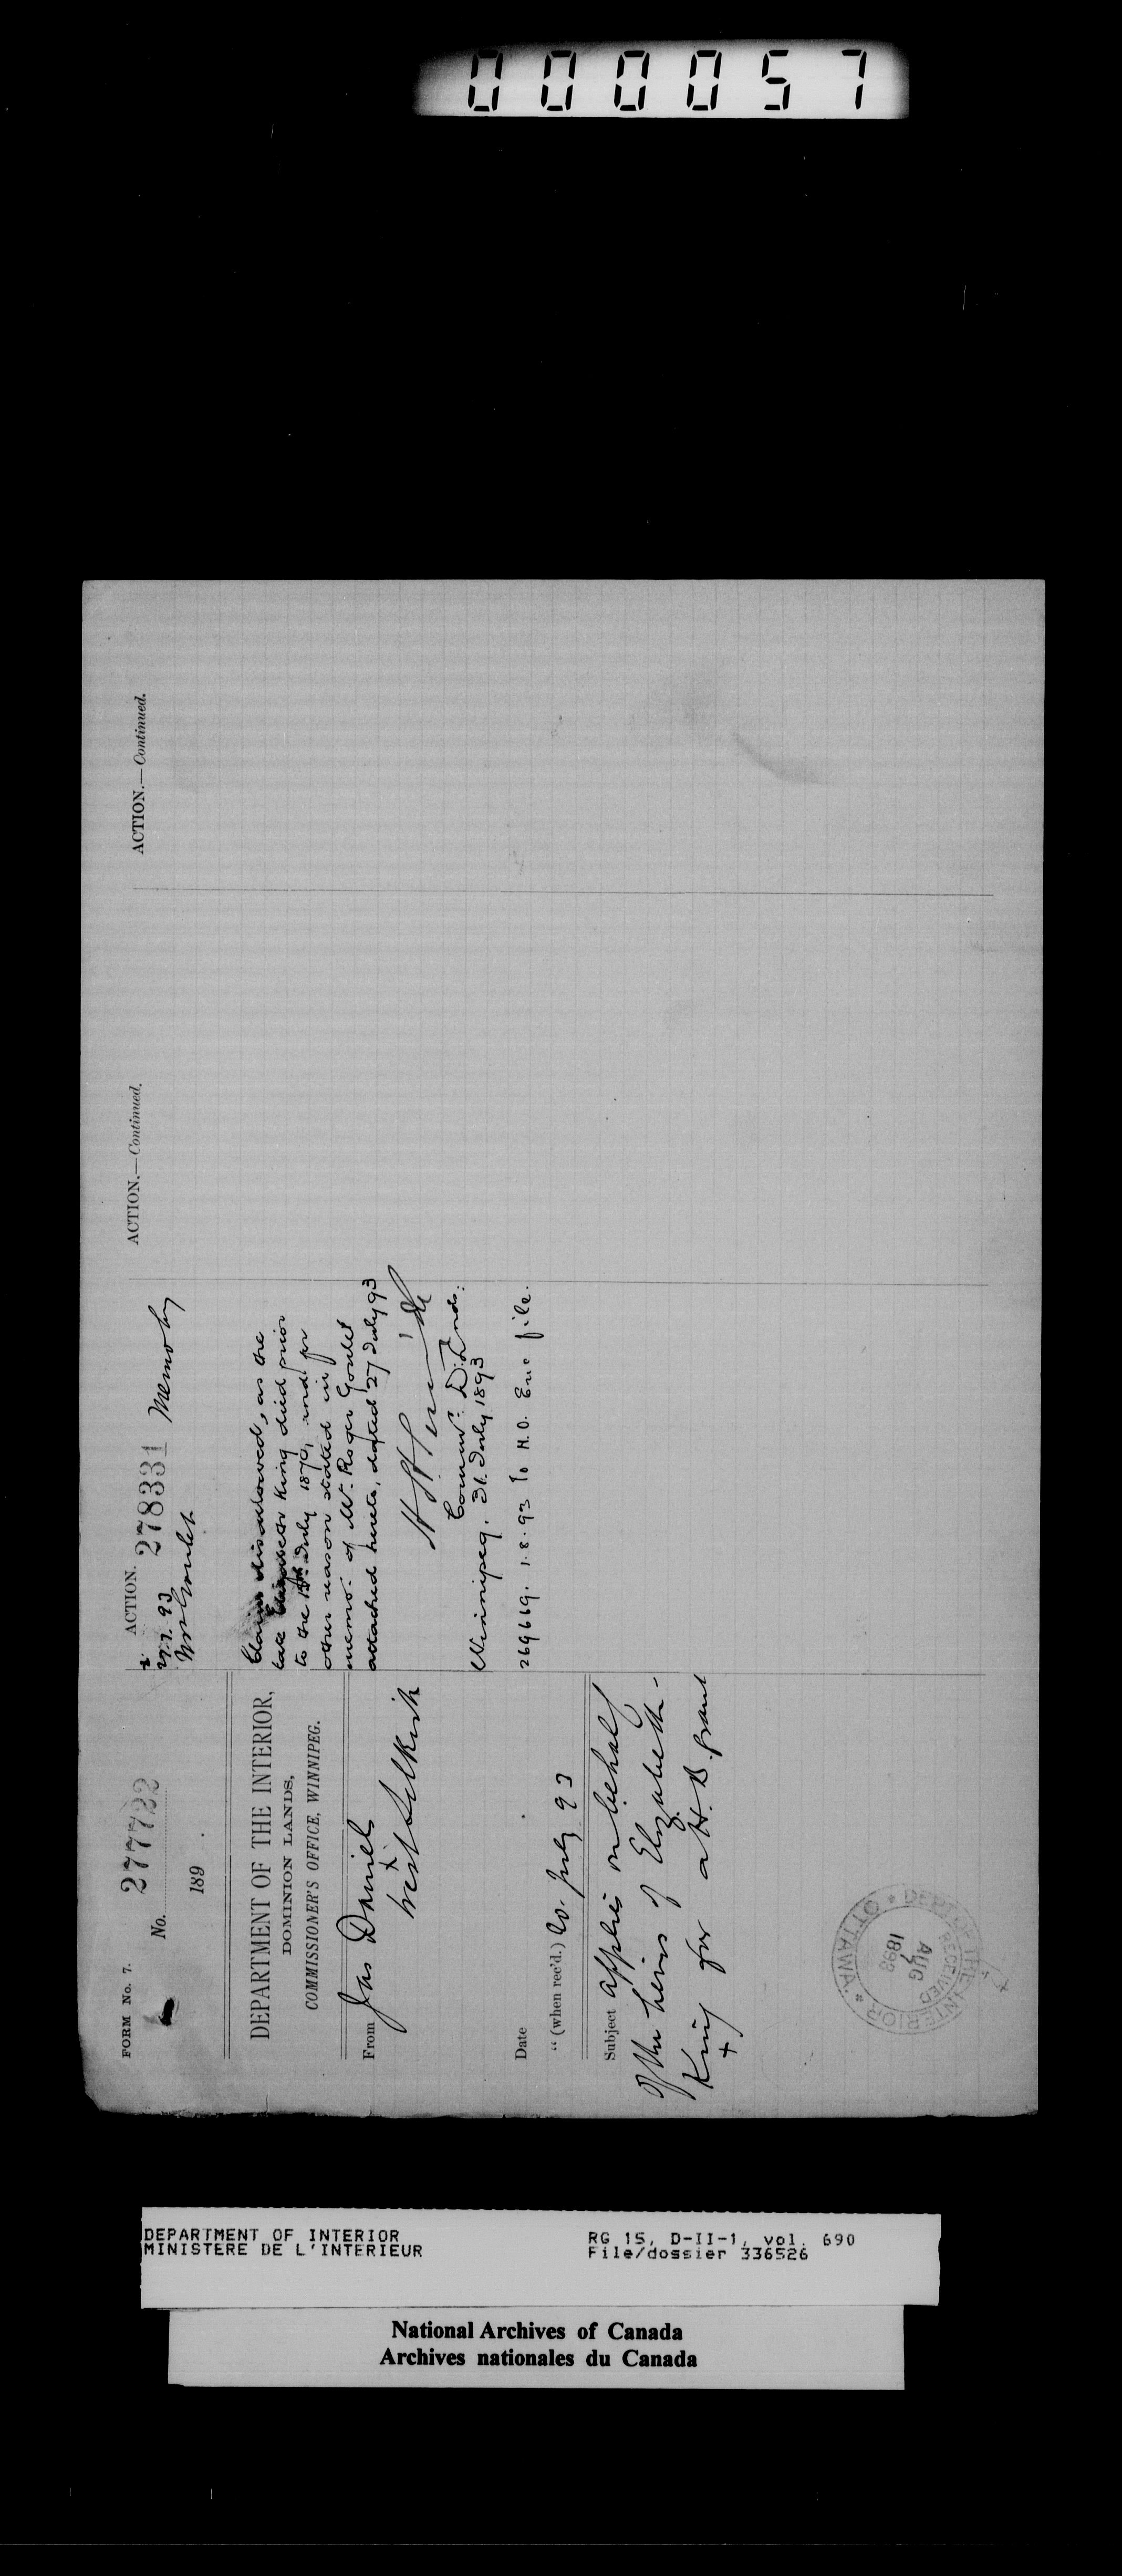 000057
FORM No. 7.
No. 277722
189 .
DEPARTMENT OF THE INTERIOR,
DOMINION LANDS,
COMMISSIONER'S OFFICE, WINNIPEG.
From Jas Daniels
West Selkirk
Date
" (when rec'd.) 20 July 93
Subject applies on behalf
of the heirs of Elizabeth
King for a H. B. grant
DEPT. OF THE INTERIOR * OTTAWA *
RECEIVED
AUG
7
1893
ACTION.
27.7.93 278331 Memo by
Mr Goulet
Claim disallowed, as the
late Elizabeth King died prior
to the 15th July 1870, and for
other reason stated in
memo. of Mr. Roger Goulet
attached hereto, dated 27 July 93
Commr. D. Lands.
Winnipeg, 31. July 1893
269669. 1.8.93 To H.O. Enc file.
ACTION.—Continued.
ACTION.—Continued.
DEPARTMENT OF INTERIOR
MINISTERE DE L'INTERIEUR
RG 15, D-II-1, vol. 690
File/dossier 336526
National Archives of Canada
Archives nationales du Canada